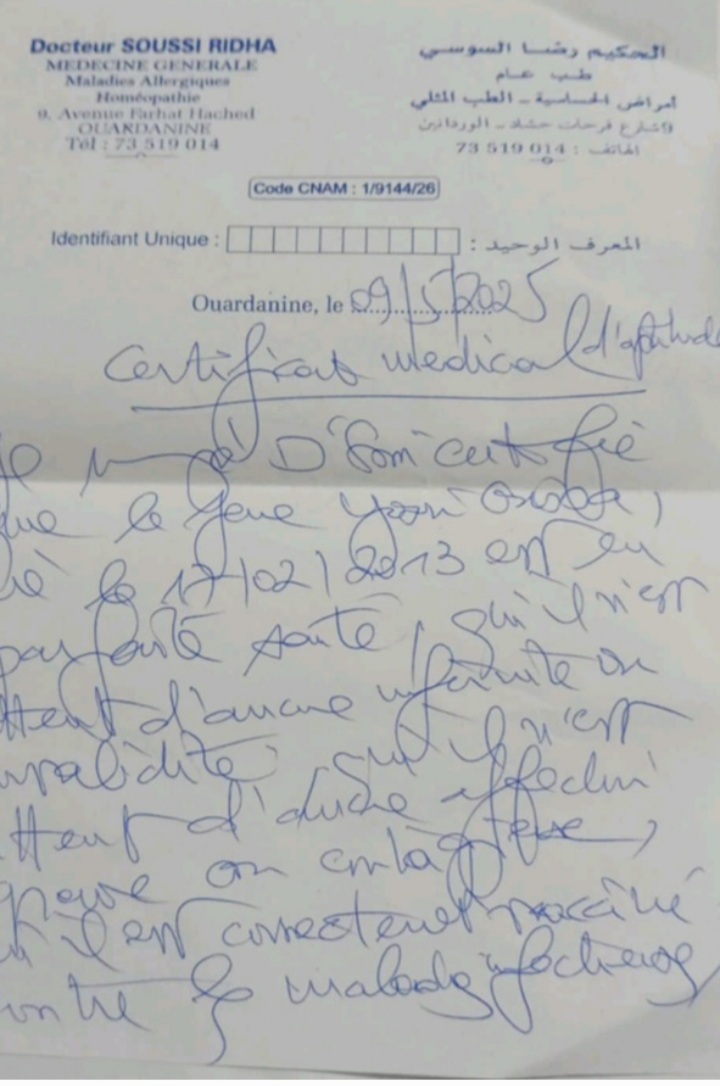 Docteur SOUSSI RIDHA
MEDECINE GENERALE
Maladies Allergiques
Homéopathie
9, Avenue Farhat Hached
OUARDANINE
Tél : 73 519 014
الحكيم رضا السوسي
طب عام
أمراض الحساسية - الطب المثلي
9 شارع فرحات حشاد - الوردانين
الهاتف : 014 519 73
Code CNAM : 1/9144/26
Identifiant Unique : المعرف الوحيد :
Ouardanine, le 09/5/2025
Certificat medical d'aptitude
certifié
que le jeune
né le 17/02/2013 est en
parfaite santé, qu'il n'est
atteint d'aucune infirmité ou
invalidité, qu'il n'est
atteint d'aucune affection
grave ou contagieuse,
il est correctement vacciné
contre les maladies infectieuses